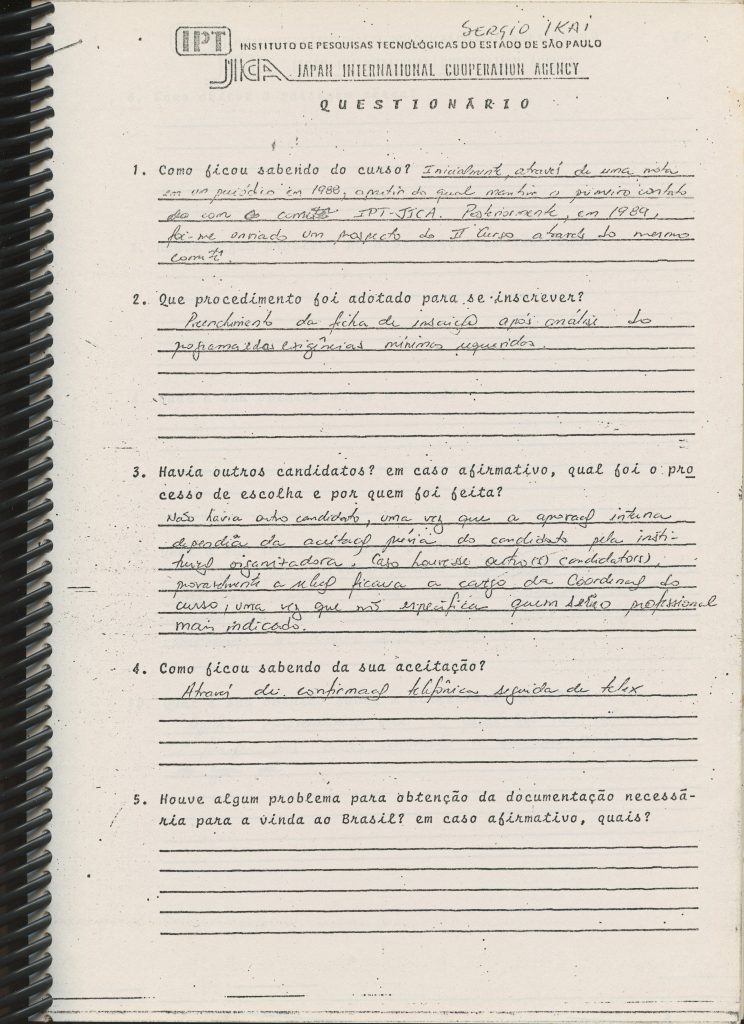 SERGIO IKAI
IPT INSTITUTO DE PESQUISAS TECNOLÓGICAS DO ESTADO DE SÃO PAULO
JICA JAPAN INTERNATIONAL COOPERATION AGENCY
QUESTIONÁRIO
1. Como ficou sabendo do curso? Inicialmente, através de uma nota
em um periódico em 1988, a partir da qual mantive o primeiro contato
com o comitê IPT-JICA. Posteriormente, em 1989,
foi-me enviado um prospecto do II Curso através do mesmo
comitê.
2. Que procedimento foi adotado para se inscrever?
Preenchimento da ficha de inscrição após análise do
programa e das exigências mínimas requeridas.
3. Havia outros candidatos? em caso afirmativo, qual foi o pro
cesso de escolha e por quem foi feita?
Não havia outro candidato, uma vez que a interna
dependia da prévia do candidato pela insti-
organizadora. Caso houvesse outro(s) candidato(s),
provavelmente a ficava a cargo da do
curso, uma vez que especifica quem o profissional
mais indicado.
4. Como ficou sabendo da sua aceitação?
Através de telefônica seguida de telex
5. Houve algum problema para obtenção da documentação necessá-
ria para a vinda ao Brasil? em caso afirmativo, quais?